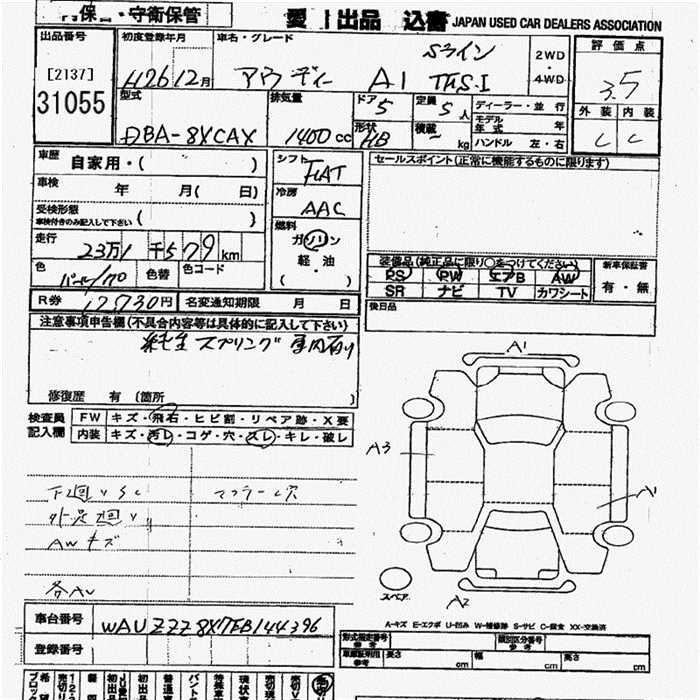 保管・守衛保管
出品 込書 JAPAN USED CAR DEALERS ASSOCIATION
出品番号 初度登録年月 車名・グレード 評価点
[2137] H26 12月 アウディー A1 TFS.I Sライン 2WD・4WD 3.5
31055
型式 排気量 ドア 定員 ディーラー・並行 外装 内装
DBA-8XCAX 1400cc 5 5人 モデル年式 年 C C
形状 HB 積載 kg ハンドル 左・右
車歴 自家用・( ) シフト FAT セールスポイント(正常に機能するものに限ります)
車検 年 月( 日) 冷房 AAC
受検形態 車検付きのみ記入して下さい ( ) 燃料 ガソリン
走行 23万1千579km 軽・油
( )
装備品(純正品に限り○をつけてください) 新車保証書
色 パール/70 色替 色コード
PS PW エアB AW 有・無
SR ナビ TV カワシート
R券 12730円 名変通知期限 月 日 後日品
注意事項申告欄(不具合内容等は具体的に記入して下さい)
純正スプリング車内有り
修復歴 有(箇所 )
検査員記入欄 FW キズ・飛石・ヒビ割・リペア跡・X要
内装 キズ・汚レ・コゲ・穴・スレ・キレ・破レ
下廻サC マフラー穴
AWキズ
各AU
A1
A3
A1
スペア
A2
A-キズ E-エクボ U-凹み W-補修跡 S-サビ C-腐食 XX-交換済
車台番号 WAUZZZ8X7EB144396
登録番号
型式指定番号 参考 類別区分番号 参考
車庫証明用 参考 長さ cm 幅 cm 高さ cm